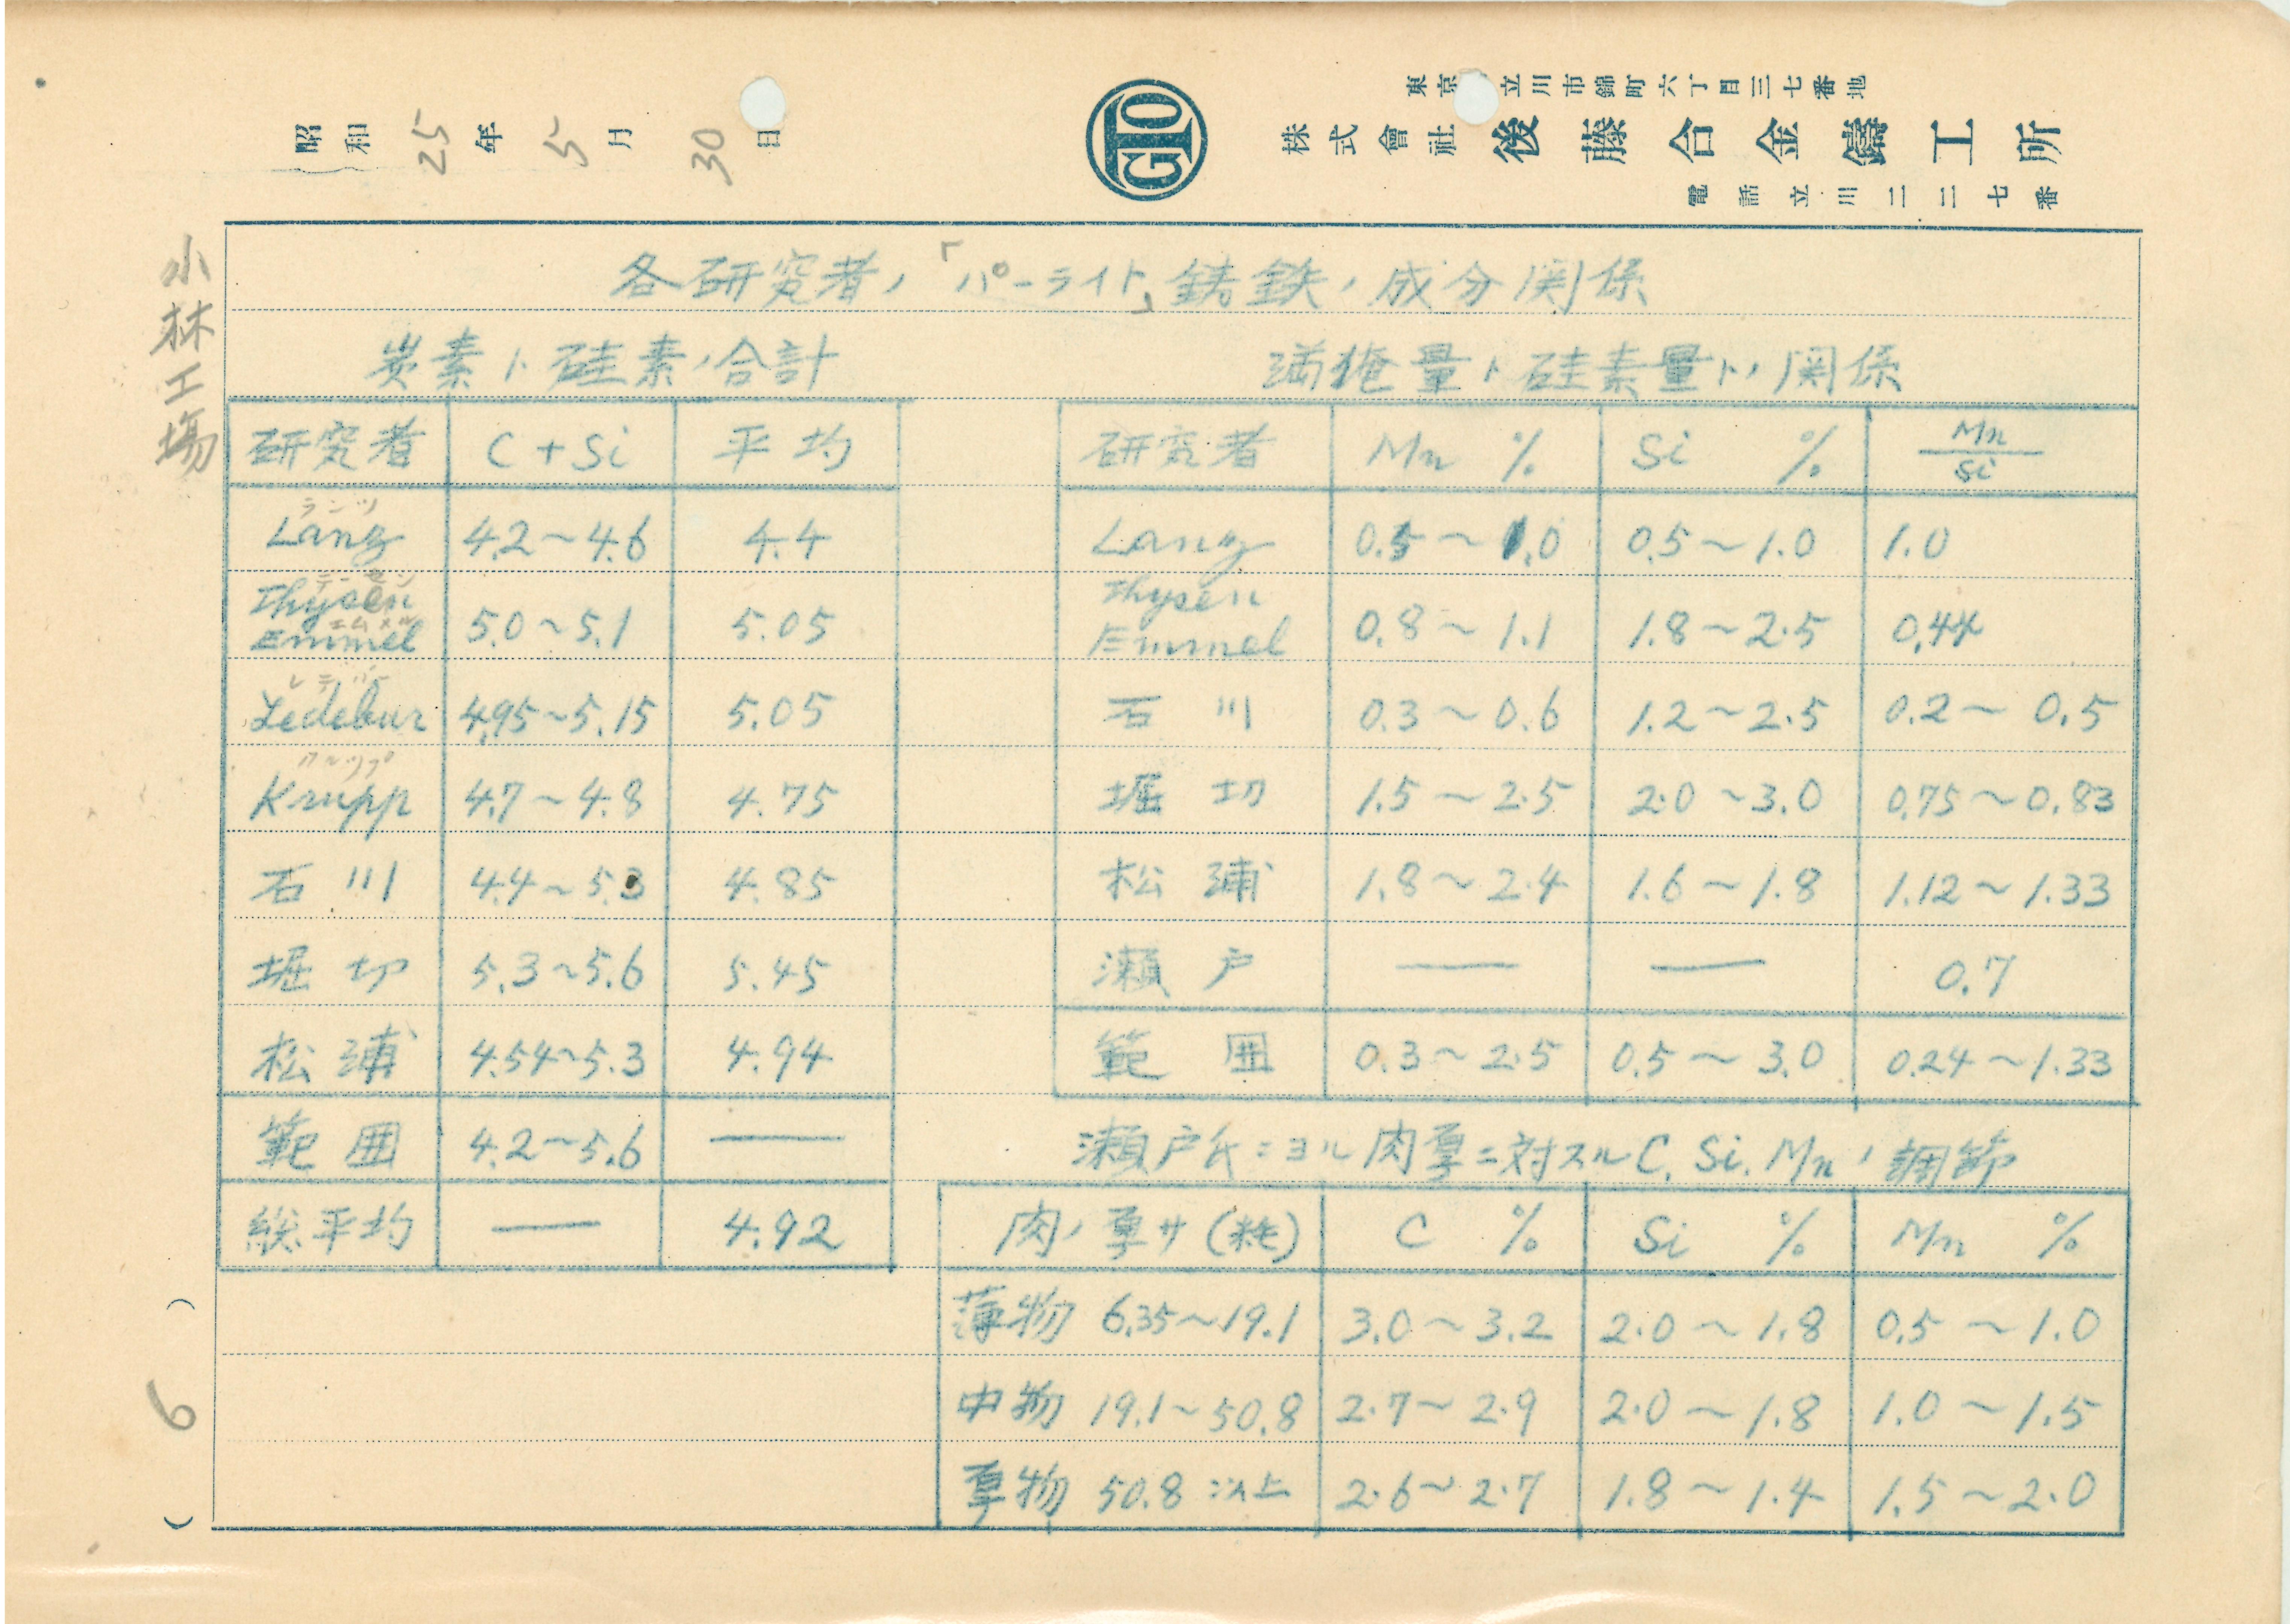 東京 立川市錦町六丁目三七番地
株式會社 後藤合金鑄工所
電話立川二二七番
GTO
昭和25年5月30日
小林工場
各研究者ノ「パーライト」鋳鉄ノ成分関係
炭素ト硅素ノ合計
研究者 C+Si 平均
ランツ
Lanz 4.2～4.6 4.4
テーセン
Thysen
エムメル
Emmel 5.0～5.1 5.05
レデバー
Ledebur 4.95～5.15 5.05
クルップ
Krupp 4.7～4.8 4.75
石川 4.4～5.3 4.85
堀切 5.3～5.6 5.45
松浦 4.54～5.3 4.94
範囲 4.2～5.6 —
総平均 — 4.92
満俺量ト硅素量トノ関係
研究者 Mn % Si % Mn/Si
Lanz 0.5～1.0 0.5～1.0 1.0
Thysen
Emmel 0.8～1.1 1.8～2.5 0.44
石川 0.3～0.6 1.2～2.5 0.2～0.5
堀切 1.5～2.5 2.0～3.0 0.75～0.83
松浦 1.8～2.4 1.6～1.8 1.12～1.33
瀬戸 — — 0.7
範囲 0.3～2.5 0.5～3.0 0.24～1.33
瀬戸氏ニヨル肉厚ニ対スルC, Si, Mnノ調節
肉ノ厚サ(粍) C % Si % Mn %
薄物 6.35～19.1 3.0～3.2 2.0～1.8 0.5～1.0
中物 19.1～50.8 2.7～2.9 2.0～1.8 1.0～1.5
厚物 50.8以上 2.6～2.7 1.8～1.4 1.5～2.0
(6)